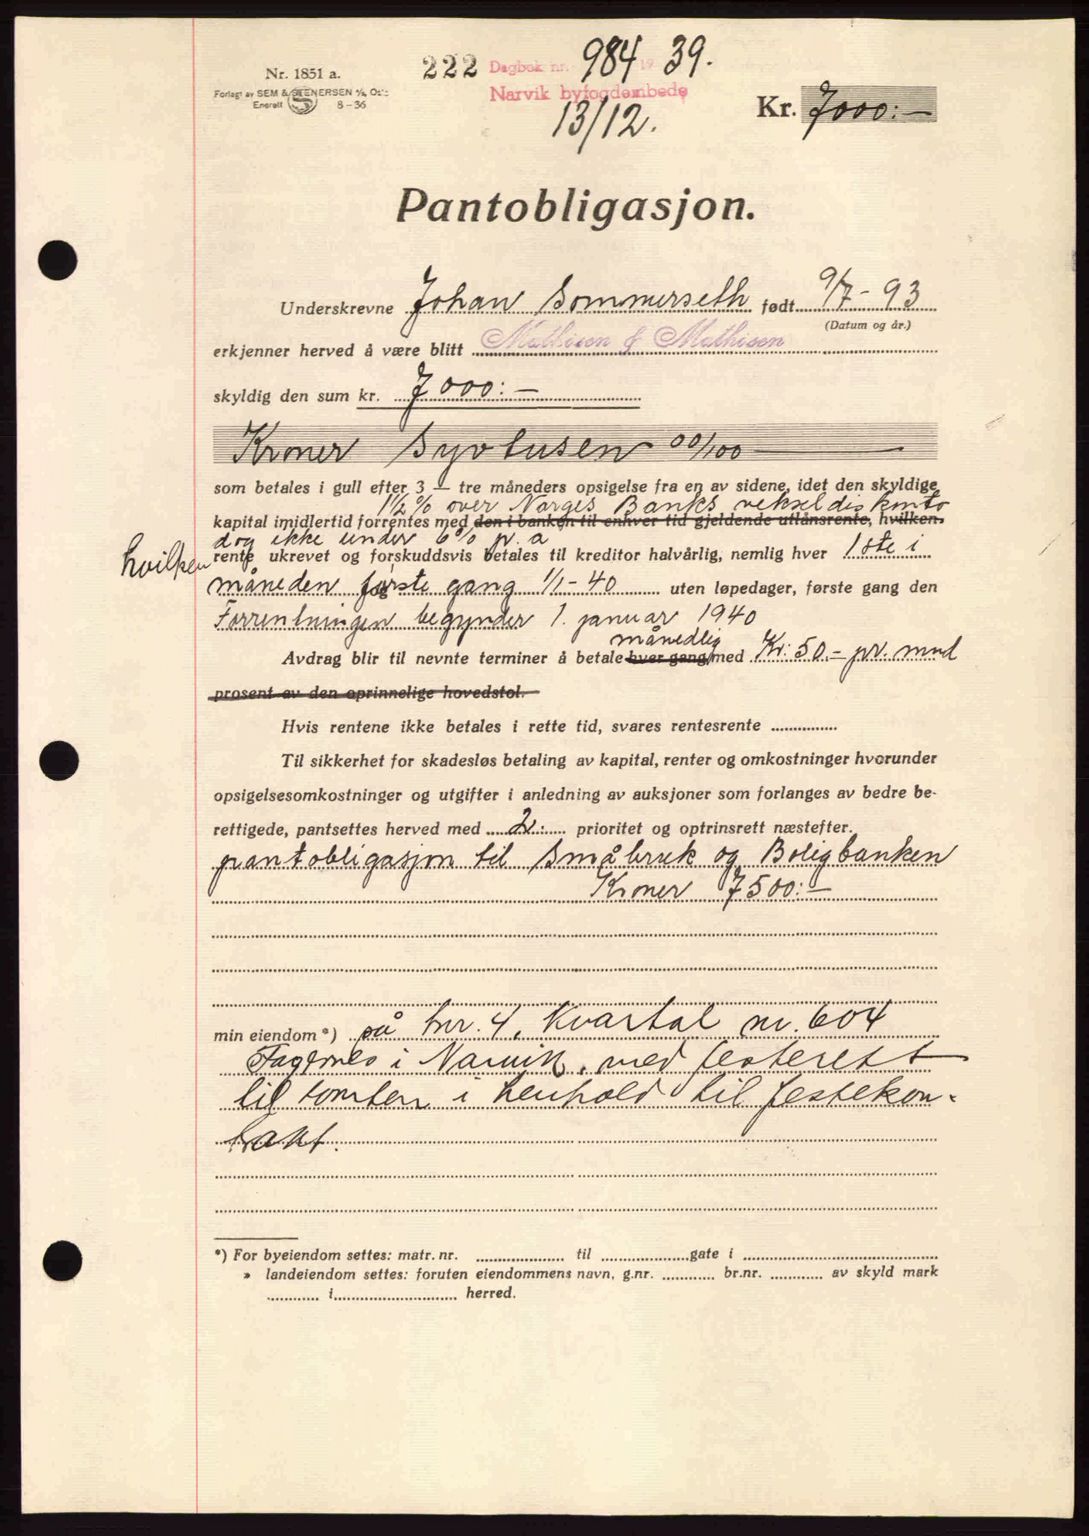 Nr. 1851 a.
Forlagt av SEM & STENERSEN A/S, Oslo
Enerett 8-36
222 Dagbok nr. 984 19 39.
Narvik byfogdembede
13/12.
Kr. 7000:-
Pantobligasjon.
Underskrevne Johan Sommerseth født 9/7-93
(Datum og år.)
erkjenner herved å være blitt Mathisen & Mathisen
skyldig den sum kr. 7000:-
Kroner Syvtusen 00/100
som betales i gull efter 3 - tre måneders opsigelse fra en av sidene, idet den skyldige
1 1/2 % over Norges Banks vekseldiskonto
kapital imidlertid forrentes med den i banken til enhver tid gjeldende utlånsrente, hvilken
dog ikke under 6% p. a
hvilken rente ukrevet og forskuddsvis betales til kreditor halvårlig, nemlig hver 1ste i
måneden første gang 1/1-40 uten løpedager, første gang den
Forrentningen begynder 1. januar 1940
månedlig
Avdrag blir til nevnte terminer å betale hver gang med Kr: 50.- pr. mnd
prosent av den oprinnelige hovedstol.
Hvis rentene ikke betales i rette tid, svares rentesrente
Til sikkerhet for skadesløs betaling av kapital, renter og omkostninger hvorunder
opsigelsesomkostninger og utgifter i anledning av auksjoner som forlanges av bedre be-
rettigede, pantsettes herved med 2. prioritet og optrinsrett næstefter.
pantobligasjon til Småbruk og Boligbanken
Kroner 7500:-
min eiendom *) på bnr. 4, Kvartal nr. 604
Fagernes i Narvik, med festerett
til tomten i henhold til festekon-
trakt.
*) For byeiendom settes: matr. nr. til gate i
» landeiendom settes: foruten eiendommens navn, g.nr. br.nr. av skyld mark
i herred.